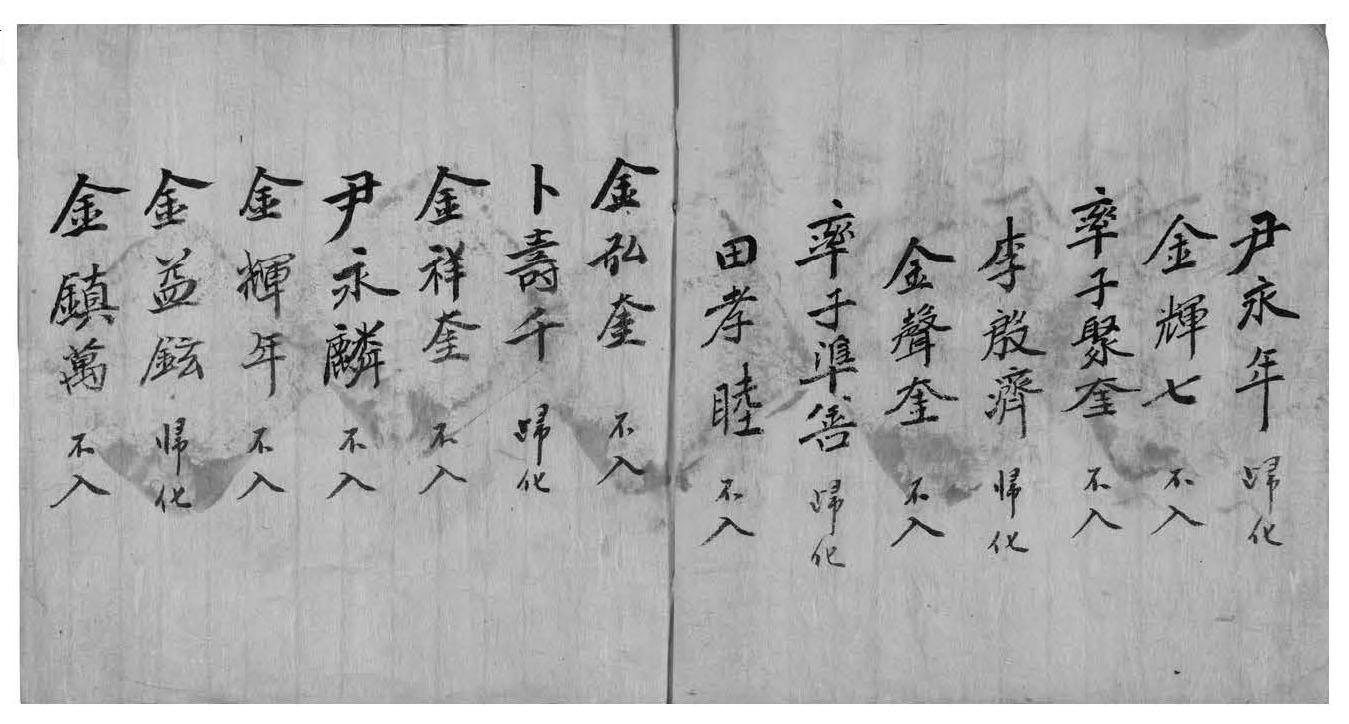 尹永年 歸化
金輝七 不入
率子聚奎 不入
李殷濟 帰化
金聲奎 不入
率子準善 歸化
田孝睦 不入
金弘奎 不入
卜壽千 歸化
金祥奎 不入
尹永麟 不入
金輝年 不入
金益鉉 帰化
金鎭萬 不入